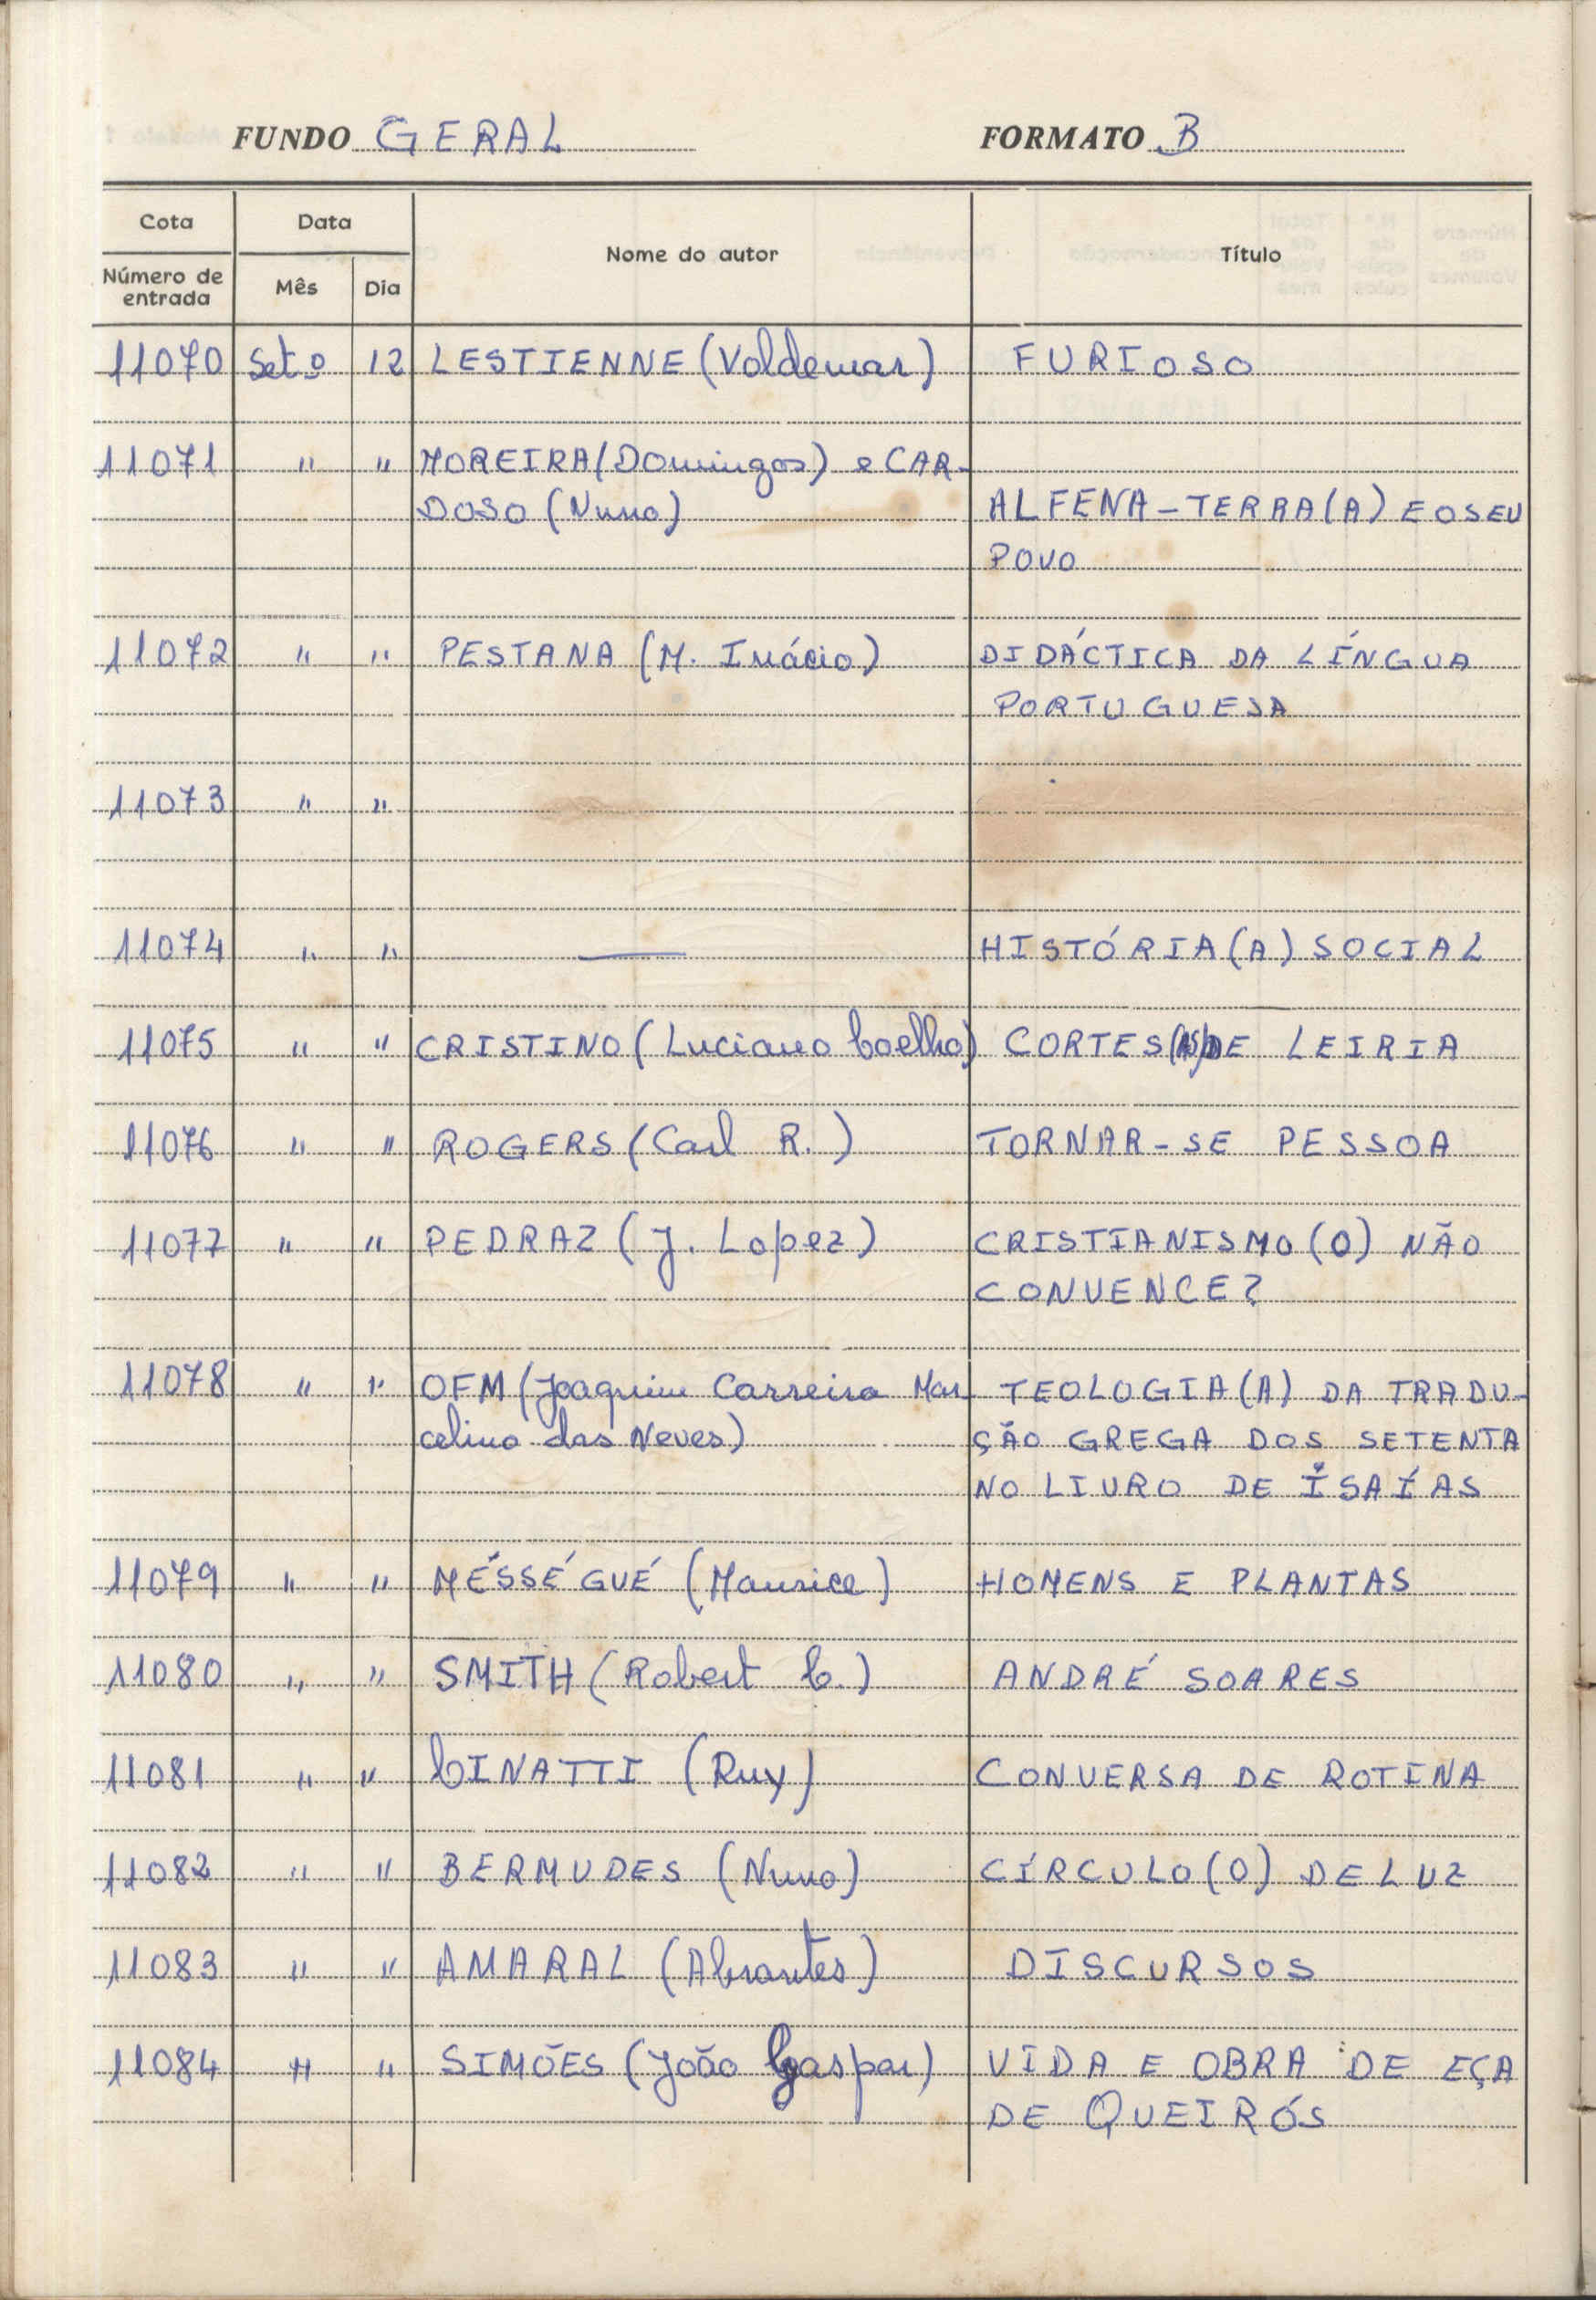 FUNDO GERAL FORMATO B
Cota Data Nome do autor Título
Número de entrada Mês Dia
11070 Set.o 12 LESTIENNE (Voldemar) FURIOSO
11071 " " MOREIRA (Domingos) e CAR-
DOSO (Nuno) ALFENA - TERRA (A) E O SEU
POVO
11072 " " PESTANA (M. Inácio) DIDÁCTICA DA LÍNGUA
PORTUGUESA
11073 " "
11074 " " — HISTÓRIA (A) SOCIAL
11075 " " CRISTINO (Luciano Coelho) CORTES (AS) DE LEIRIA
11076 " " ROGERS (Carl R.) TORNAR-SE PESSOA
11077 " " PEDRAZ (J. Lopez) CRISTIANISMO (O) NÃO
CONVENCE?
11078 " " OFM (Joaquim Carreira Mar- TEOLOGIA (A) DA TRADU-
celino das Neves) ÇÃO GREGA DOS SETENTA
NO LIVRO DE ISAÍAS
11079 " " MÉSSÉGUÉ (Maurice) HOMENS E PLANTAS
11080 " " SMITH (Robert C.) ANDRÉ SOARES
11081 " " CINATTI (Ruy) CONVERSA DE ROTINA
11082 " " BERMUDES (Nuno) CÍRCULO (O) DE LUZ
11083 " " AMARAL (Abrantes) DISCURSOS
11084 " " SIMÕES (João Gaspar) VIDA E OBRA DE EÇA
DE QUEIRÓS